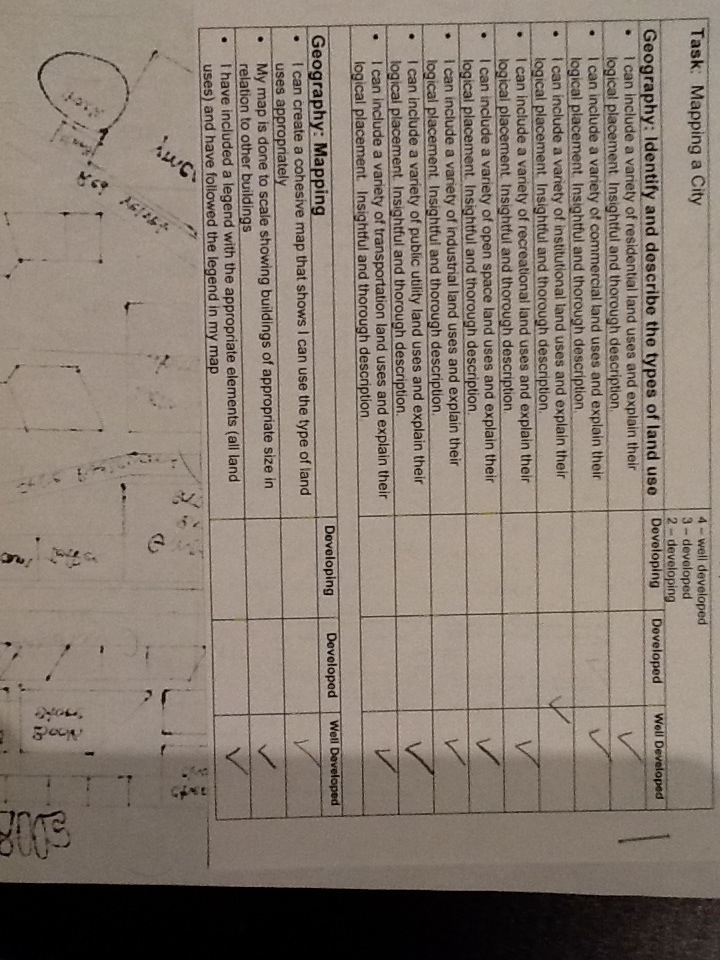 Task: Mapping a City
4 – well developed
3 – developed
2 – developing
Geography: Identify and describe the types of land use Developing Developed Well Developed
• I can include a variety of residential land uses and explain their
logical placement. Insightful and thorough description.
• I can include a variety of commercial land uses and explain their
logical placement. Insightful and thorough description.
• I can include a variety of institutional land uses and explain their
logical placement. Insightful and thorough description.
• I can include a variety of recreational land uses and explain their
logical placement. Insightful and thorough description.
• I can include a variety of open space land uses and explain their
logical placement. Insightful and thorough description.
• I can include a variety of industrial land uses and explain their
logical placement. Insightful and thorough description.
• I can include a variety of public utility land uses and explain their
logical placement. Insightful and thorough description.
• I can include a variety of transportation land uses and explain their
logical placement. Insightful and thorough description
Geography: Mapping Developing Developed Well Developed
• I can create a cohesive map that shows I can use the type of land
uses appropriately
• My map is done to scale showing buildings of appropriate size in
relation to other buildings
• I have included a legend with the appropriate elements (all land
uses) and have followed the legend in my map